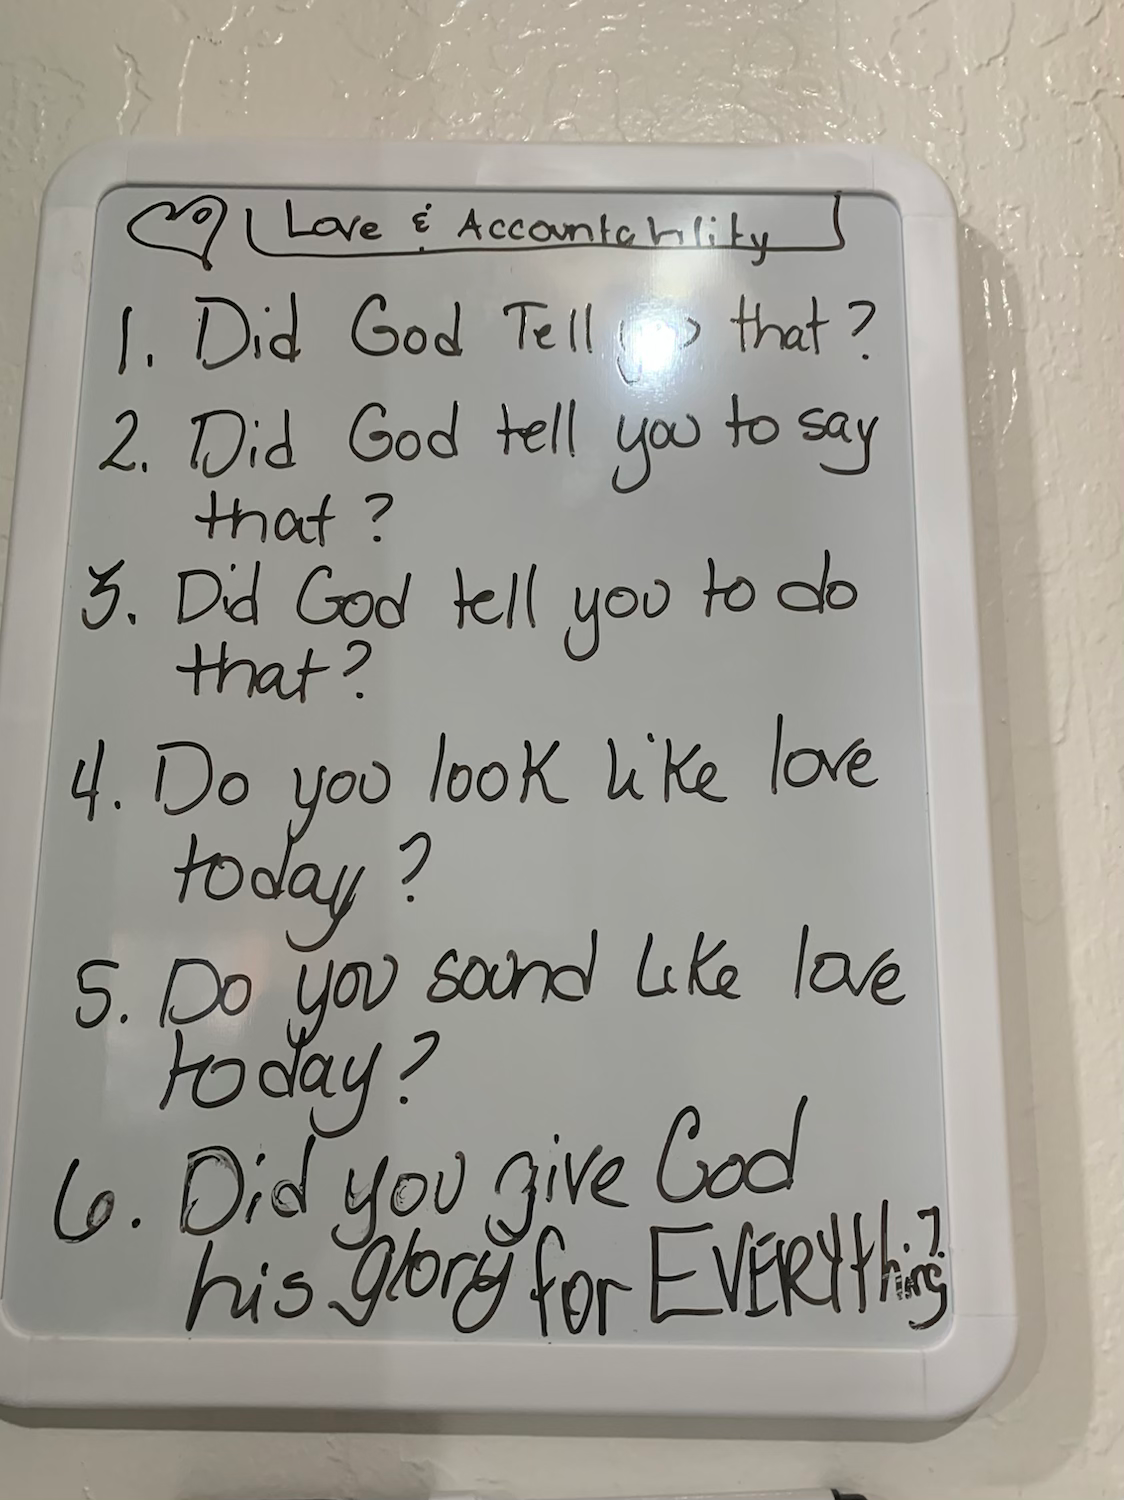 Love & Accountability
1. Did God Tell you that?
2. Did God tell you to say
that?
3. Did God tell you to do
that?
4. Do you look like love
today?
5. Do you sound like love
today?
6. Did you give God
his glory for EVERYthing?